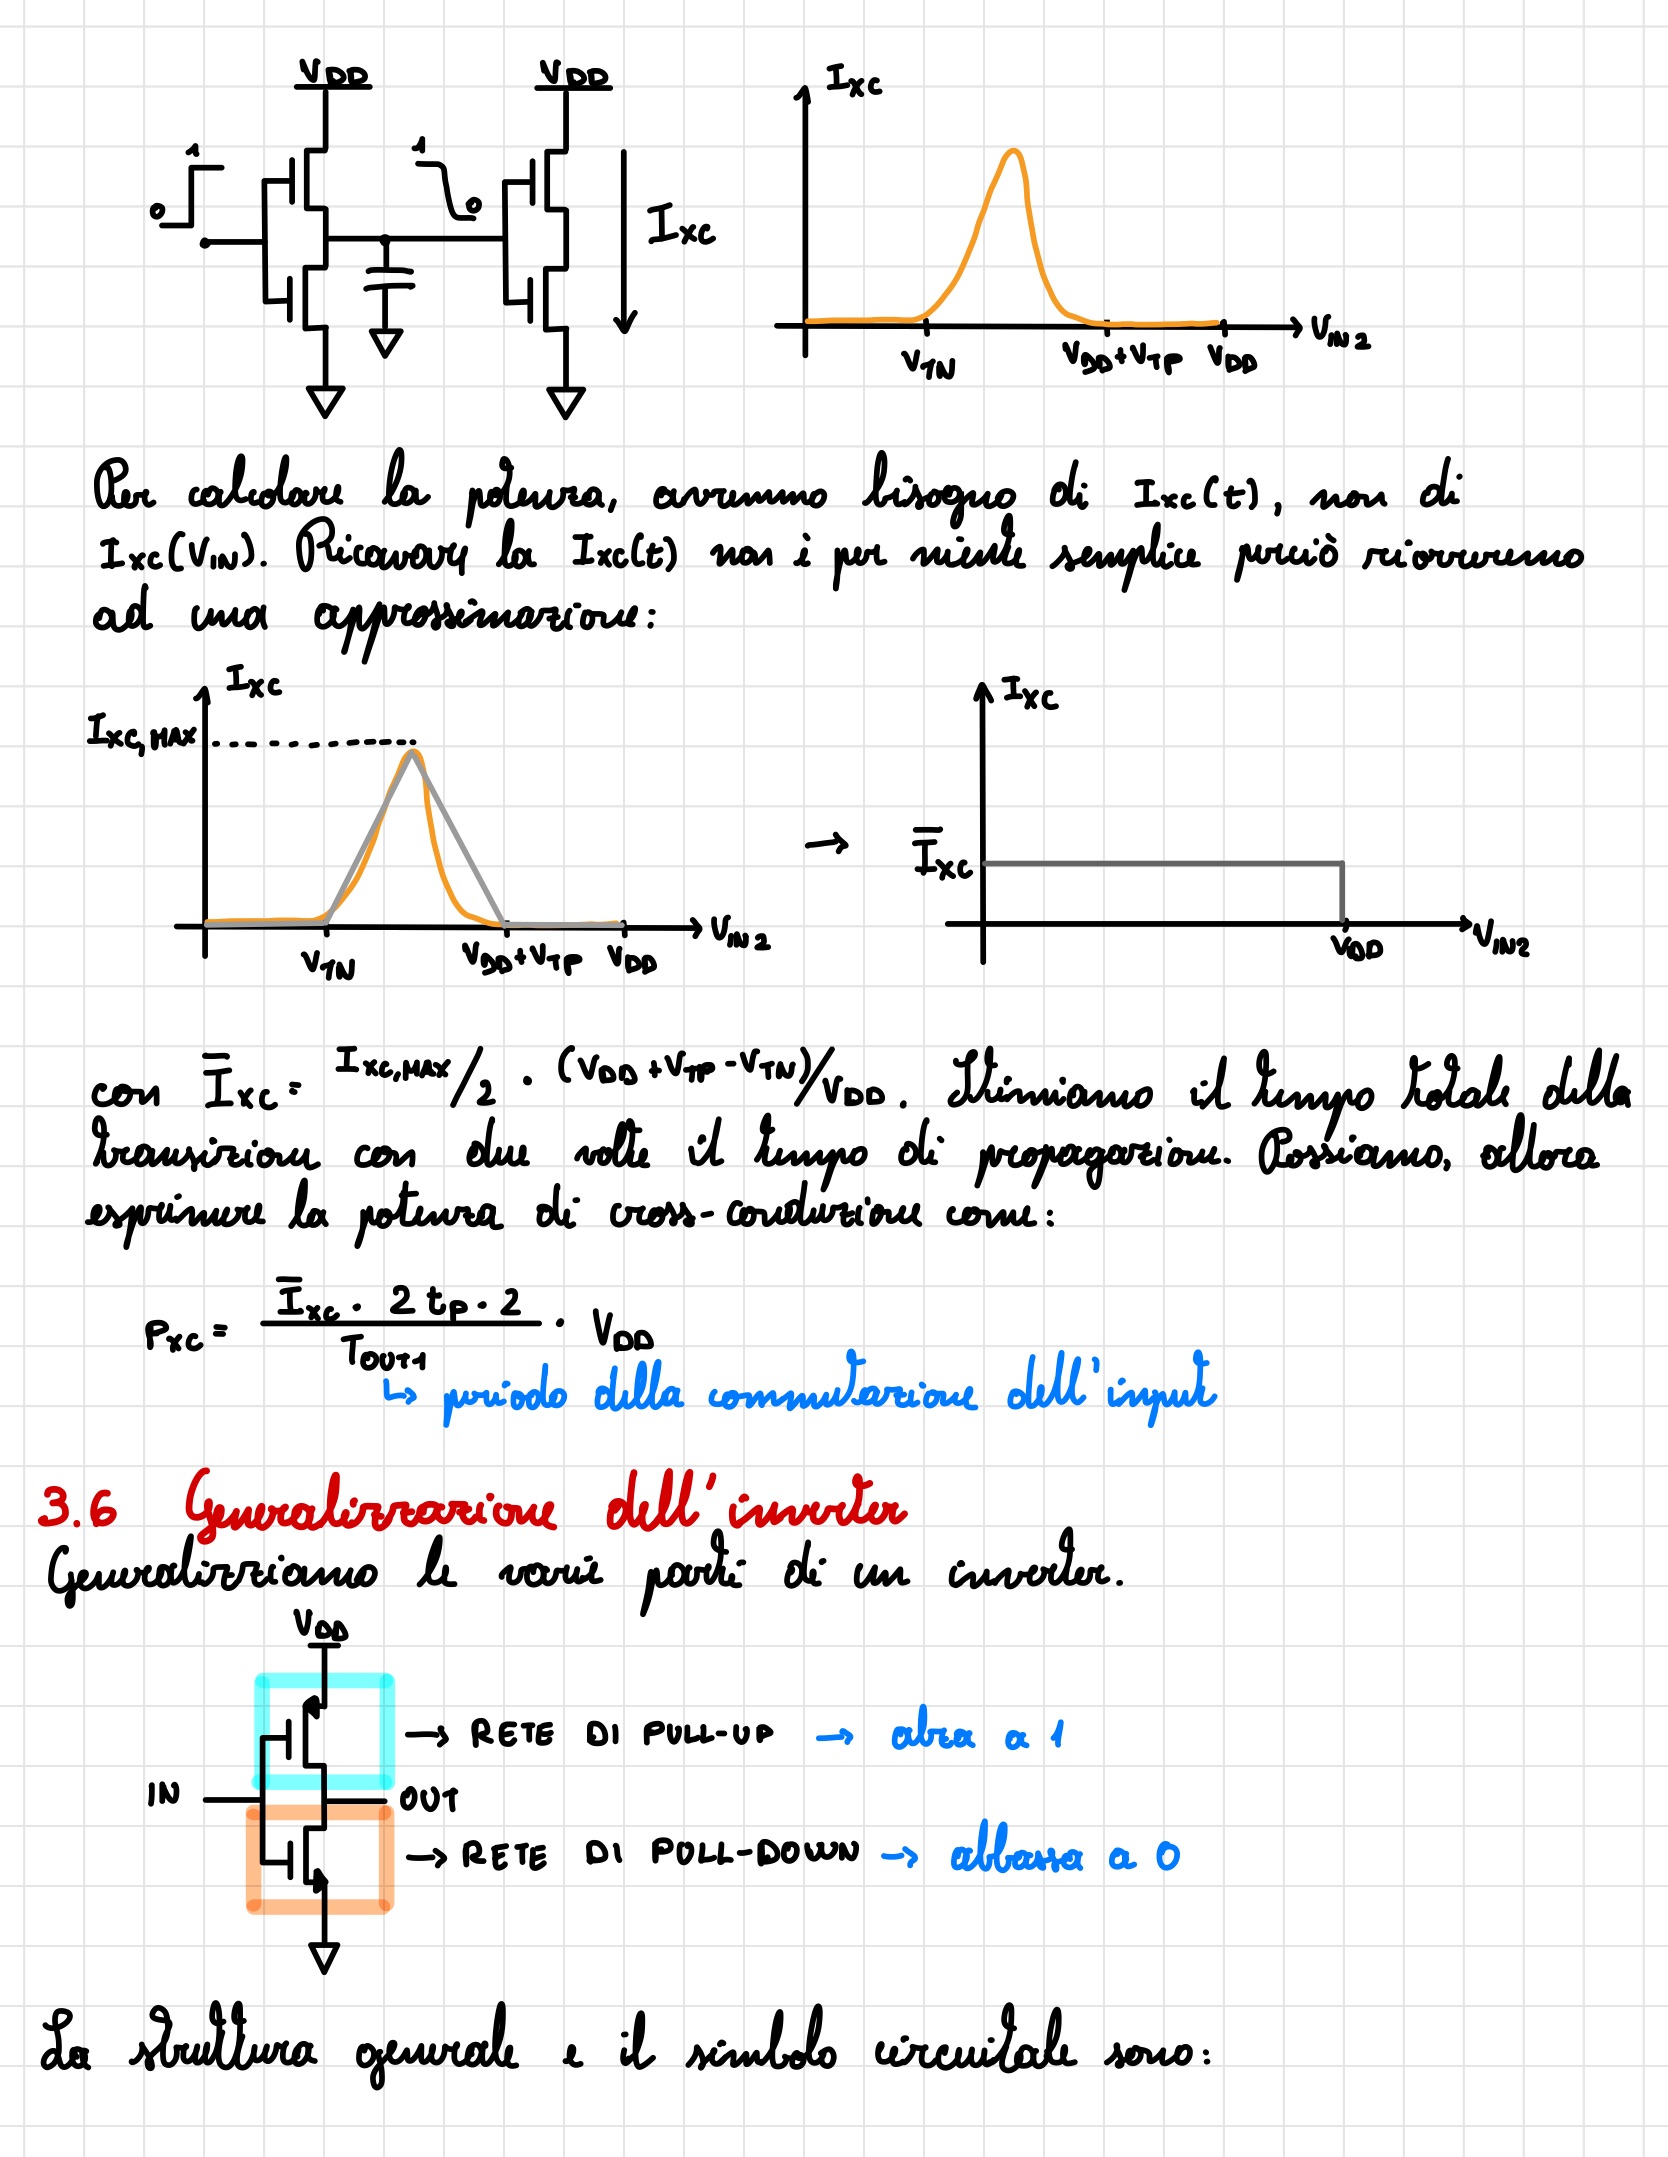 V_DD V_DD I_XC
1 1
0 0 I_XC
V_TN V_DD+V_TP V_DD V_IN2
Per calcolare la potenza, avremmo bisogno di I_XC(t), non di
I_XC(V_IN). Ricavare la I_XC(t) non è per niente semplice perciò ricorreremo
ad una approssimazione:
I_XC I_XC
I_XC,MAX
→ I̅_XC
V_TN V_DD+V_TP V_DD V_IN2 V_DD V_IN2
con I̅_XC = I_XC,MAX/2 · (V_DD+V_TP-V_TN)/V_DD. Stimiamo il tempo totale della
transizione con due volte il tempo di propagazione. Possiamo, allora
esprimere la potenza di cross-conduzione come:
P_XC = I̅_XC · 2 t_P · 2 / T_OUT1 · V_DD
↳ periodo della commutazione dell'input
3.6 Generalizzazione dell'inverter
Generalizziamo le varie parti di un inverter.
V_DD
→ RETE DI PULL-UP → alza a 1
IN OUT
→ RETE DI PULL-DOWN → abbassa a 0
La struttura generale e il simbolo circuitale sono: